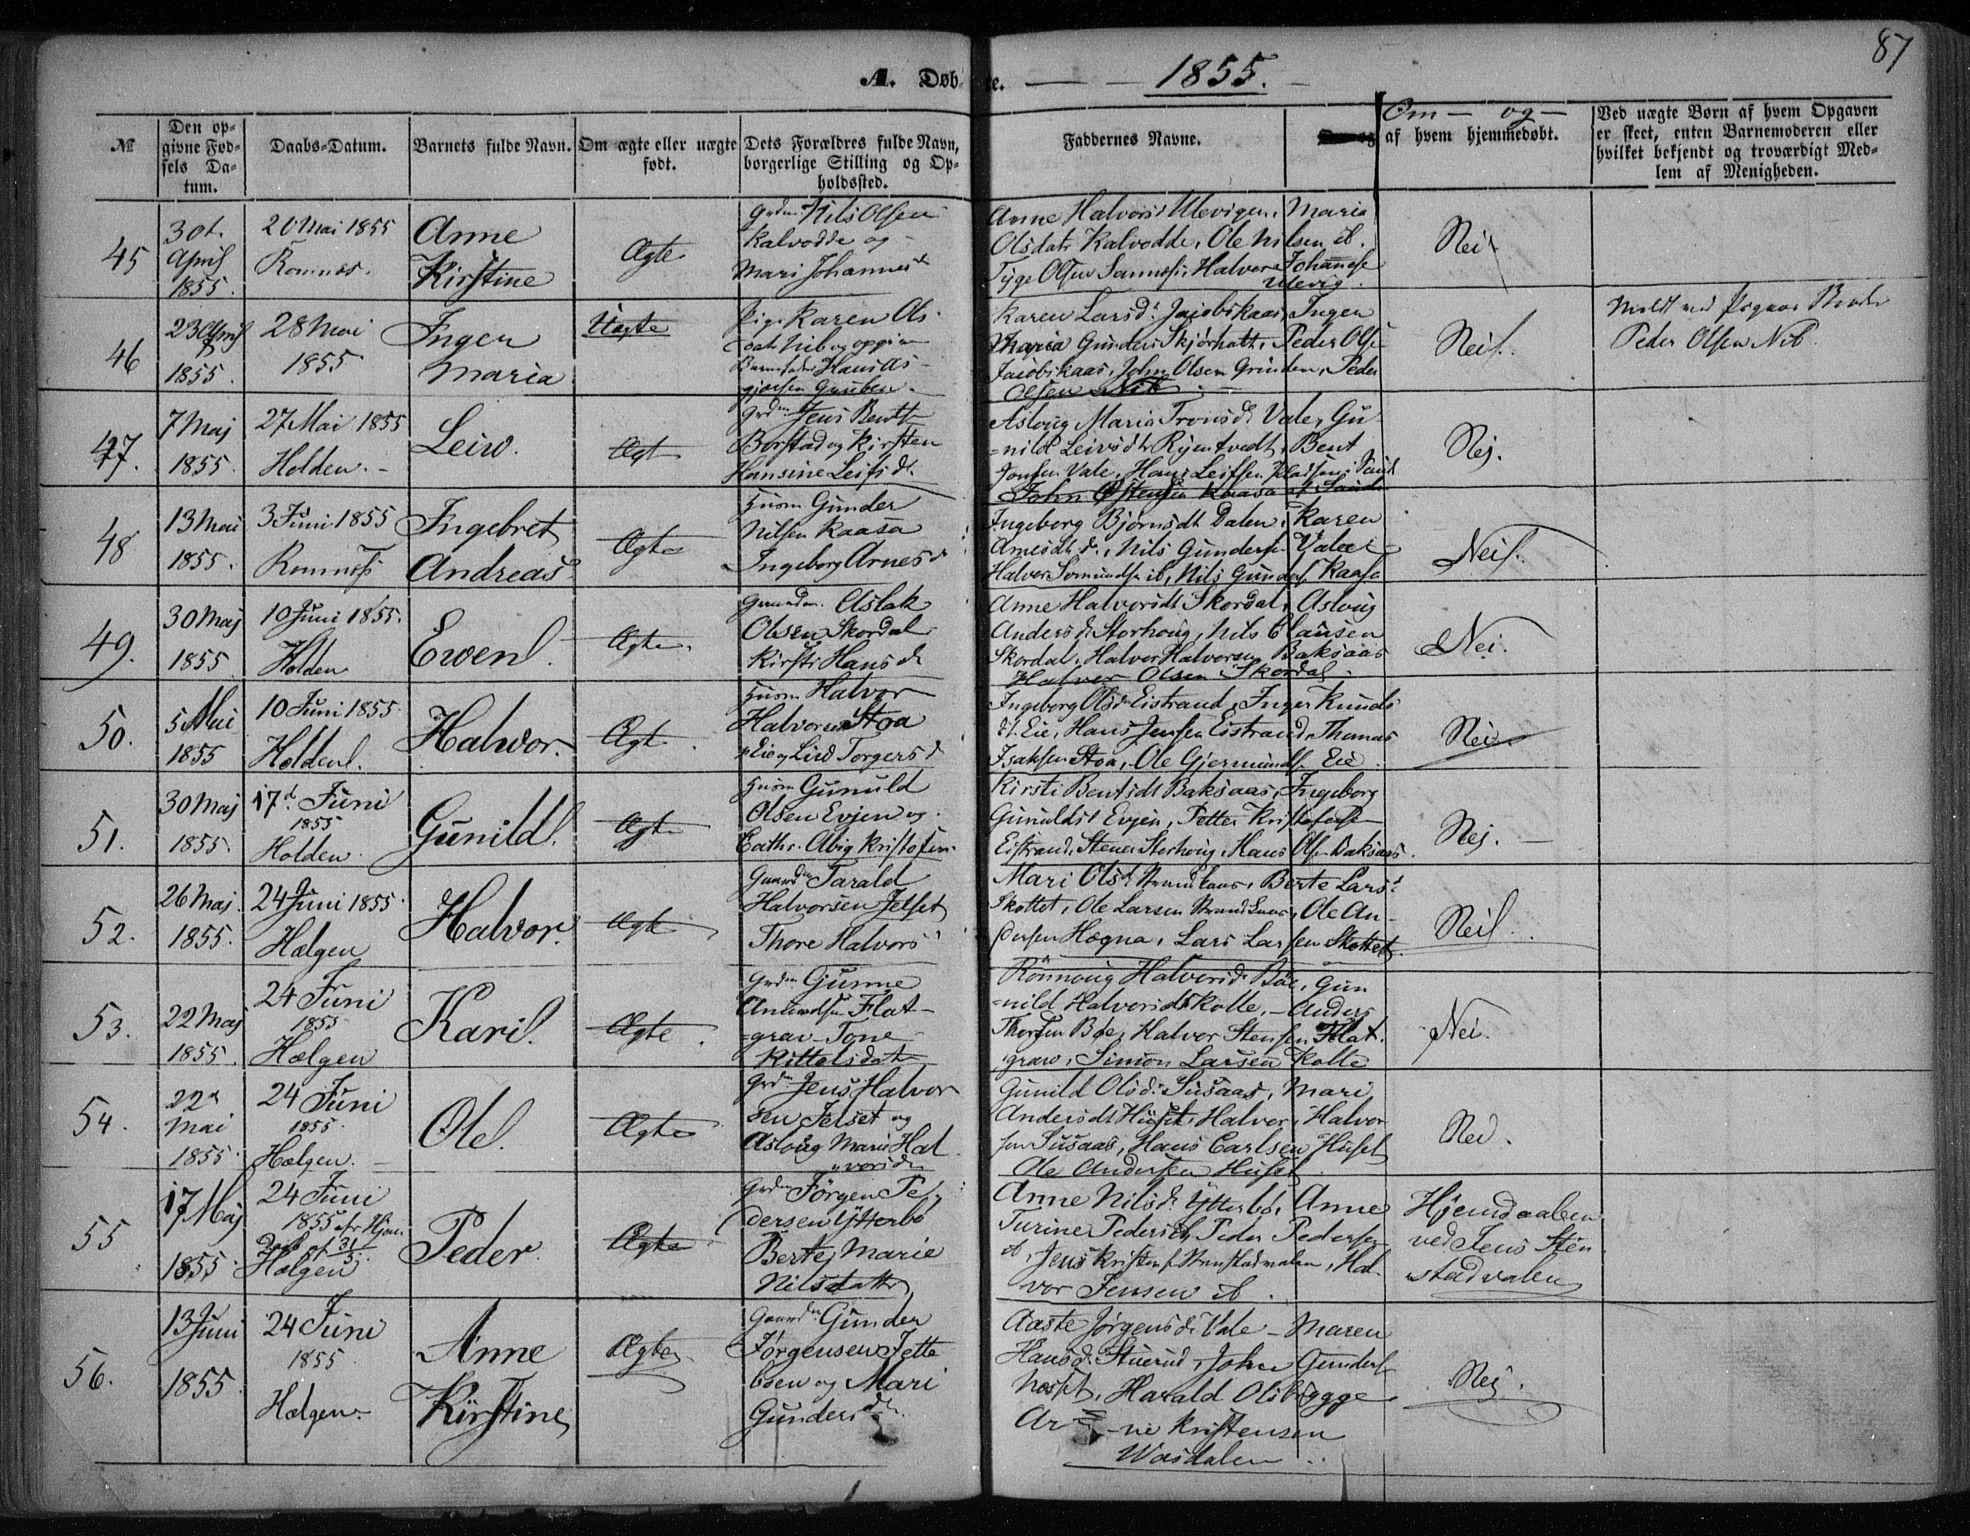 87
A. Døbte. 1855.
№
Den opgivne Fødsels Datum.
Daabs-Datum.
Barnets fulde Navn.
Om ægte eller uægte født.
Dets Forældres fulde Navn, borgerlige Stilling og Opholdssted.
Faddernes Navne.
Om — og —
af hvem hjemmedøbt.
Ved uægte Børn af hvem Opgaven er skeet, enten Barnemoderen eller hvilket bekjendt og troværdigt Medlem af Menigheden.
45
30t. April 1855.
20 Mai 1855
Romnæs.
Anne
Kirstine
Ægte
Nils Olsen
Kalvodde og
Mari Johannesd
Anne Halvorsd Ulevigen, Maria
Olsdatr Kalvodde, Ole Nilsen ib.
Tyge Olsen Sannæs, Halvor Johannese
Ulevig.
Nei
46
23 April 1855.
28 Mai
1855
Inger
Maria
Uægte
Pige Karen Ols
Barnefader Hans
Karen Larsd. Jacobskaas, Inger
Maria Gunders Skjørhatt, Peder Olse
Jacobskaas, John Olsen Grinden, Peder
Olsen Nib
Nei.
Peder Olsen Nib.
47.
7 Maj 1855.
27 Mai 1855
Holden. -
Leiv.
Ægt
Grdm Jens Bent
Borstad og Kirsten
Hansine Leifsd.
Aslaug Maria Tronsd. Vale, Gu
=nild Leivsdtr Ryntvedt, Bent
Jonsen Vale, Hans Leifsen
John Østensen Kaasa
Nej.
48
13 Mai 1855.
3 Juni 1855
Romnæs
Ingebret
Andreas
Ægte
Husm Gunder
Nilsen Kaasa
Ingeborg Arnesd
Ingeborg Bjørnsdt Dalen, Karen
Arnesdt d., Nils Gundersen Valee
Halvor ib, Nils Gunders Kaasa
Nei.
49.
30 Maj 1855
10 Juni 1855.
Holden
Ewen.
Ægte.
Aslak
Olsen Skordal
Kirsti Hansd
Anne Halvorsdt Skordal, Aslaug
Andersd Storhoug, Nils Clausen
Skordal, Halvor Halvorsen Baksaas
Halvor Olsen Skordal
Nei.
50.
5 Mai 1855
10 Juni 1855.
Holden.
Halvor.
Ægt.
Husm Halvor
Halvorsen Stoa
Eie og Liv Torgersd
Ingeborg Olsd Eistrand, Inger Knuds
dt. Eie, Hans Jensen Eistrand, Thomas
Isaksen Stoa, Ole Gjermunds. Eie
Nei.
51.
30 Maj 1855.
17d Juni
1855
Holden.
Gunild.
Ægte
Husm Gunuld
Olsen Evjen og
Cathr. Abig Kristofers.
Kirsti Bentsdt Baksaas, Ingeborg
Gunuldsd Evjen, Petter Kristofers
Eistrand, Stener Storhoug, Hans Olsen Baksaas.
Nej. —
52.
26 Maj 1855.
24 Juni 1855.
Hælgen
Halvor.
Ægte
Gaardm Tarald
Halvorsen Jelset
Thore Halvors
Mari Olsd., Berte Larsd
Skottet, Ole Larsen, Ole An-
dersen Høgna, Lars Larsen Skottet
Nei.
53.
22 Maj 1855.
24 Juni
1855
Hælgen
Kari.
Ægte.
Grdm Gunne
Flat-
=grav Tone
Kittelsdatr
Rönnoug Halvorsd Böe, Gun
=nild Halvorsdt Kolle, Anders
Thorsen Böe, Halvor Stensen Flat.
graw, Simon Larsen Kolle
Nei.
54.
22d Mai 1855
24 Juni
1855.
Hælgen. —
Ole.
Ægte
Grdm Jens Halvor
sen Jelset og
Aslaug Marie Hal
=vorsd
Gunild Olsd. Susaas, Mari
Andersdt Huset, Halvor Halvor
sen Susaas, Hans Carlsen Huset
Ole Andersen Huset
Nei.
55
17 Maj 1855
24 Juni
1855 efr Hjem.
Daab 31/5
Hælgen
Peder.
Ægte
Grdm Jørgen Pe-
dersen Ytterbö
Berte Marie
Nilsdatter
Anne Nilsd. Ytterbø, Anne
Turine Pedersd, Peder Pedersen
ib, Jens Kristens, Hal-
vor Jensen ib.
Hjemdaaben
ved Jens Sten
=stadvalen
56.
13 Juni 1855.
24 Juni
1855
Hælgen.
Anne
Kirstine
Ægte
Gaardm Gunder
Jørgensen Tette
bøen og Mari
Gundersd.
Aaste Jørgensd. Vale — Maren
Hansd. Stuerud, John Gunders
Næset, Harald Olsbrygge
Ar=
-ne Kristensen
Vasdalen
Nej.